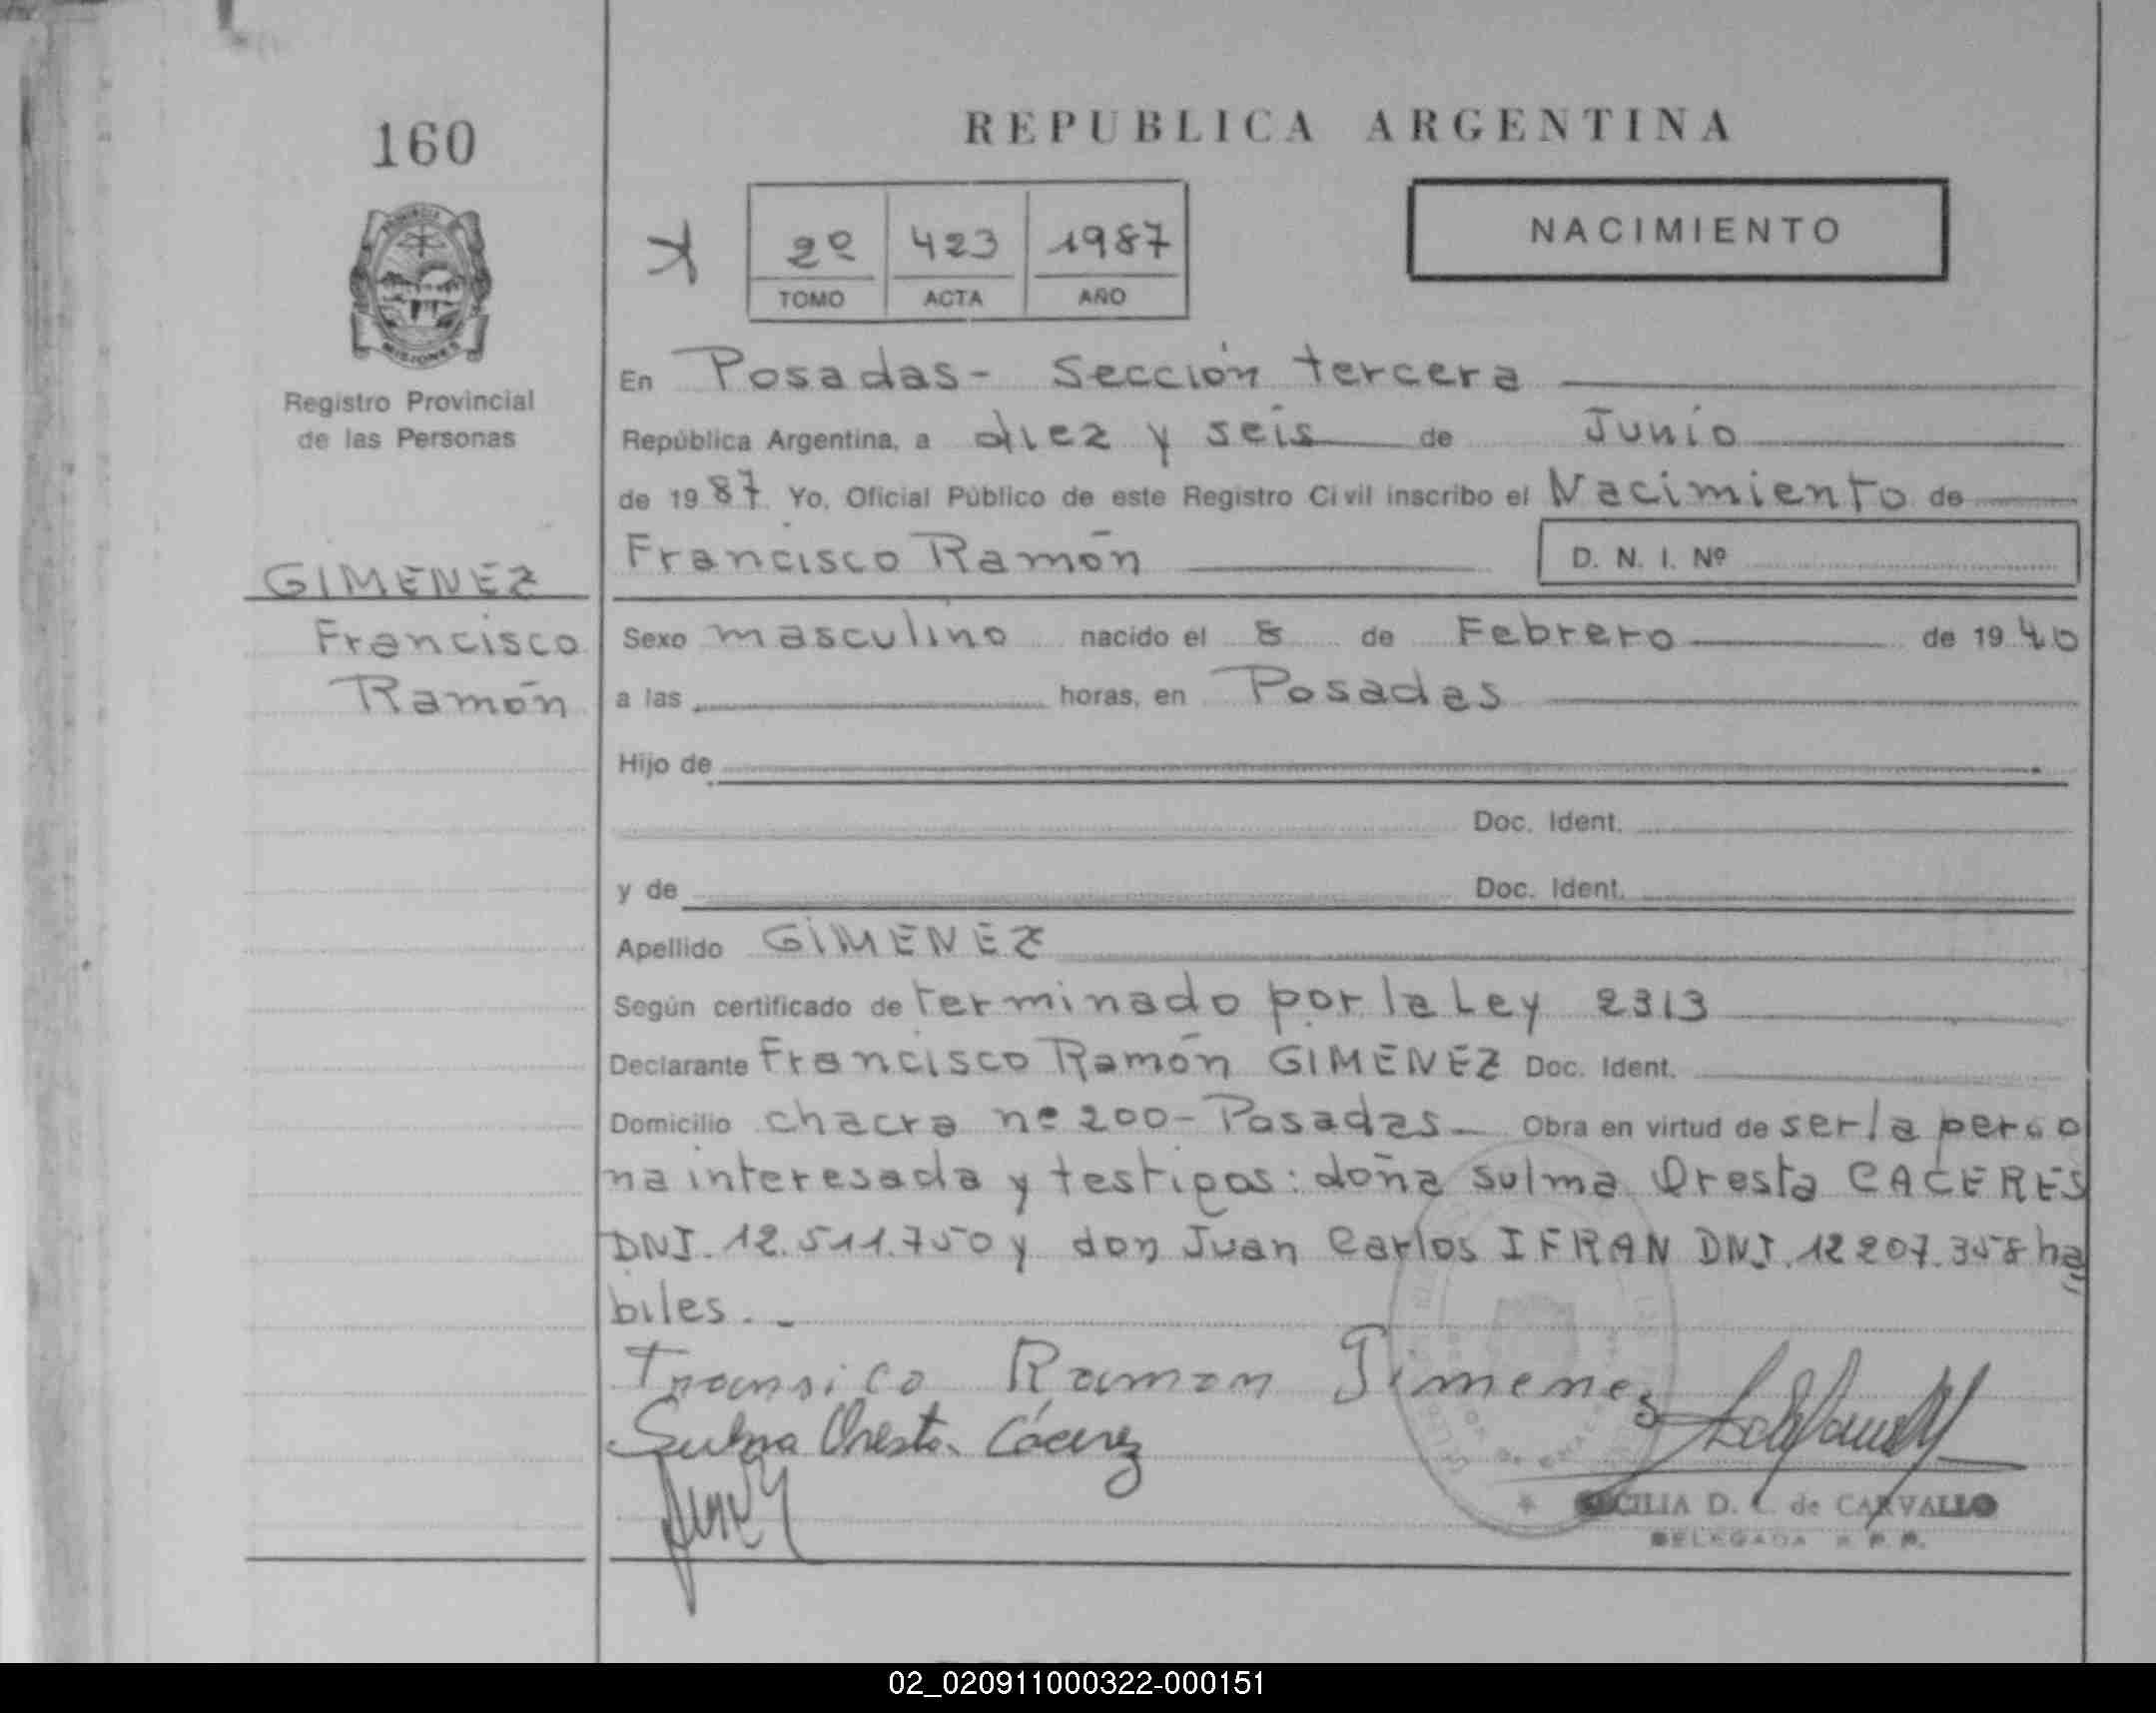 160
REPUBLICA ARGENTINA
2º 423 1987
TOMO ACTA AÑO
NACIMIENTO
MISIONES
Registro Provincial
de las Personas
GIMENEZ
Francisco
Ramón
En Posadas - Sección tercera
República Argentina, a diez y seis de Junio
de 1987. Yo, Oficial Público de este Registro Civil inscribo el Nacimiento de
Francisco Ramón D. N. I. Nº
Sexo masculino nacido el 8 de Febrero de 1940
a las horas, en Posadas
Hijo de
Doc. Ident.
y de Doc. Ident.
Apellido GIMENEZ
Según certificado de terminado por la Ley 2313
Declarante Francisco Ramón GIMENEZ Doc. Ident.
Domicilio chacra nº 200 - Posadas - Obra en virtud de ser la perso
na interesada y testigos: doña Sulma Oresta CACERES
DNI. 12.511.750 y don Juan Carlos IFRAN DNI. 12 207.358 ha
biles. -
Fransico Ramon Jimenes
Sulma Oresta Cácerez
CECILIA D. C. de CARVALLO
DELEGADA R. P. P.
02_020911000322-000151